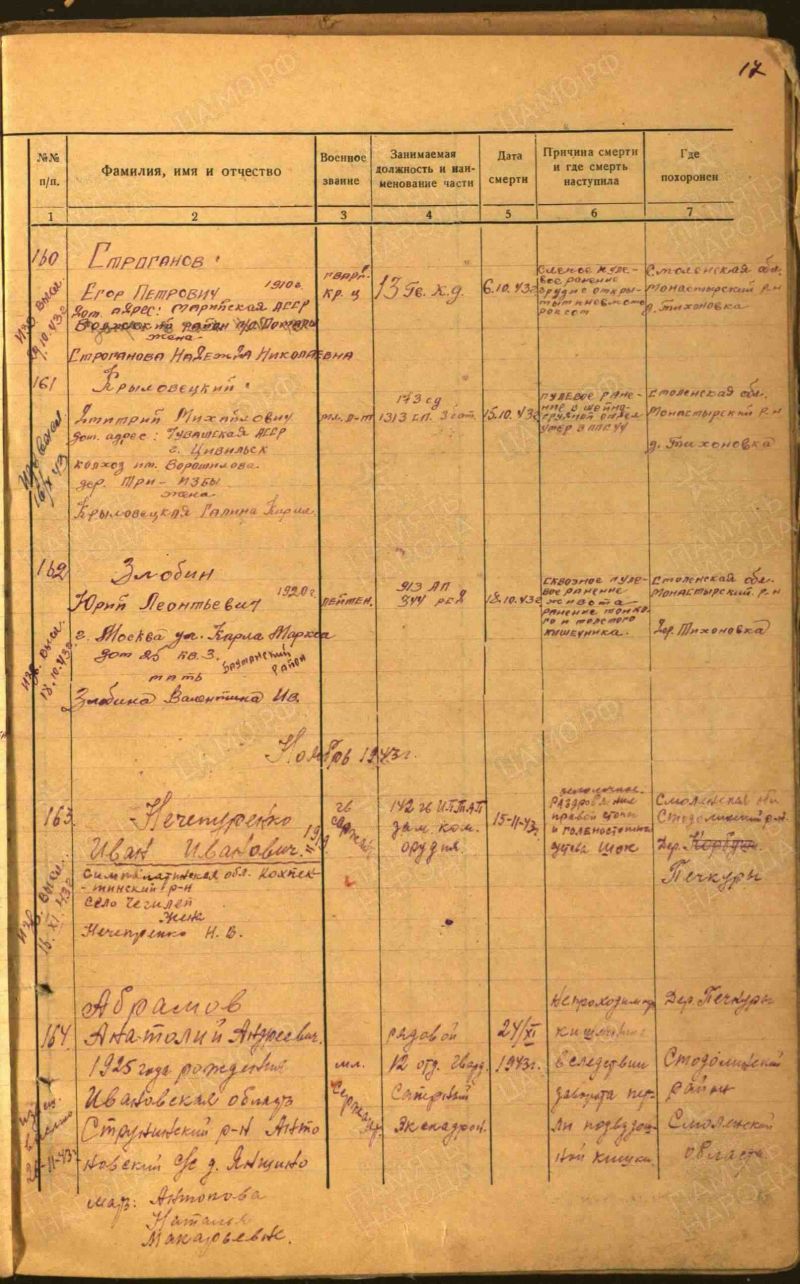 17
№№ п/п.
Фамилия, имя и отчество
Военное звание
Занимаемая должность и наименование части
Дата смерти
Причина смерти и где смерть наступила
Где похоронен
1 2 3 4 5 6 7
160
Строганов
Егор Петрович 1910г.
дом. адрес: Марийская АССР
район
жена
Строганова Надежда Николаевна
гвард.
кр-ц
13 гв. к.д.
6.10.43г
Слепое пуле-
вое ранение
груди с откры-
тым пневмото
раксом
Смоленская обл.
Монастырский р-н
д. Тихоновка
Изв. высл.
9.10.43г
161
Крыловецкий
Дмитрий Михайлович
дом. адрес: Чувашская АССР
г. Цивильск
колхоз им. Ворошилова
дер. Три-Избы
жена
Крыловецкая Галина Карп
мл. л-т
173 сд
1313 с.п. 3 бат.
15.10.43г
Пулевое ране-
ние в шейно-
грудной отдел
умер в ППГ
Смоленская обл.
Монастырский р-н
д. Тихоновка
Изв. высл.
16/X 43
162
Злобин
Юрий Леонтьевич 1920г.
г. Москва ул. Карла Маркса
дом 25 кв. 3. Бауманский район
мать
Злобина Валентина Ив.
лейтен.
913 АП
344
18.10.43г
Сквозное пуле-
вое ранение
живота
ранение тонко-
го и толстого
кишечника.
Смоленская обл.
Монастырский р-н
Дер. Тихоновка
Изв. высл.
18.10.43г
Ноябрь 1943г.
163
Нечепуренко
Иван Иванович. 1919
Семипалатинская обл. Кокпек-
тинский р-н
село Чегилей
жена
Нечепренко Н. В.
гв
сержант
142 гв ИПТАП
зам. ком.
орудия
15-11-43г.
раздробление
правой стопы
и голеностопного
шок
Смоленская обл
Стодолищский р-н.
Дер.
Печкуры
Изв. высл.
16.XI.43г
164
Абрамов
Анатолий Андреевич.
1925 года рождения
Ивановская область
Струнинский р-н Анто
новский с/с д.
мать: Антонова
Наталья
Макарьевна.
мл.
сержант
рядовой
12 отд. гвард.
Саперный
Эскадрон.
24/XI
1943г.
Непроходим
кишечника
вследствии
заворота пет-
ли подвздош
ной кишки
Дер. Печкуры
Стодолищский
район
Смоленской
области
-11-43г
ЦАМО.РФ
ПАМЯТЬ
НАРОДА